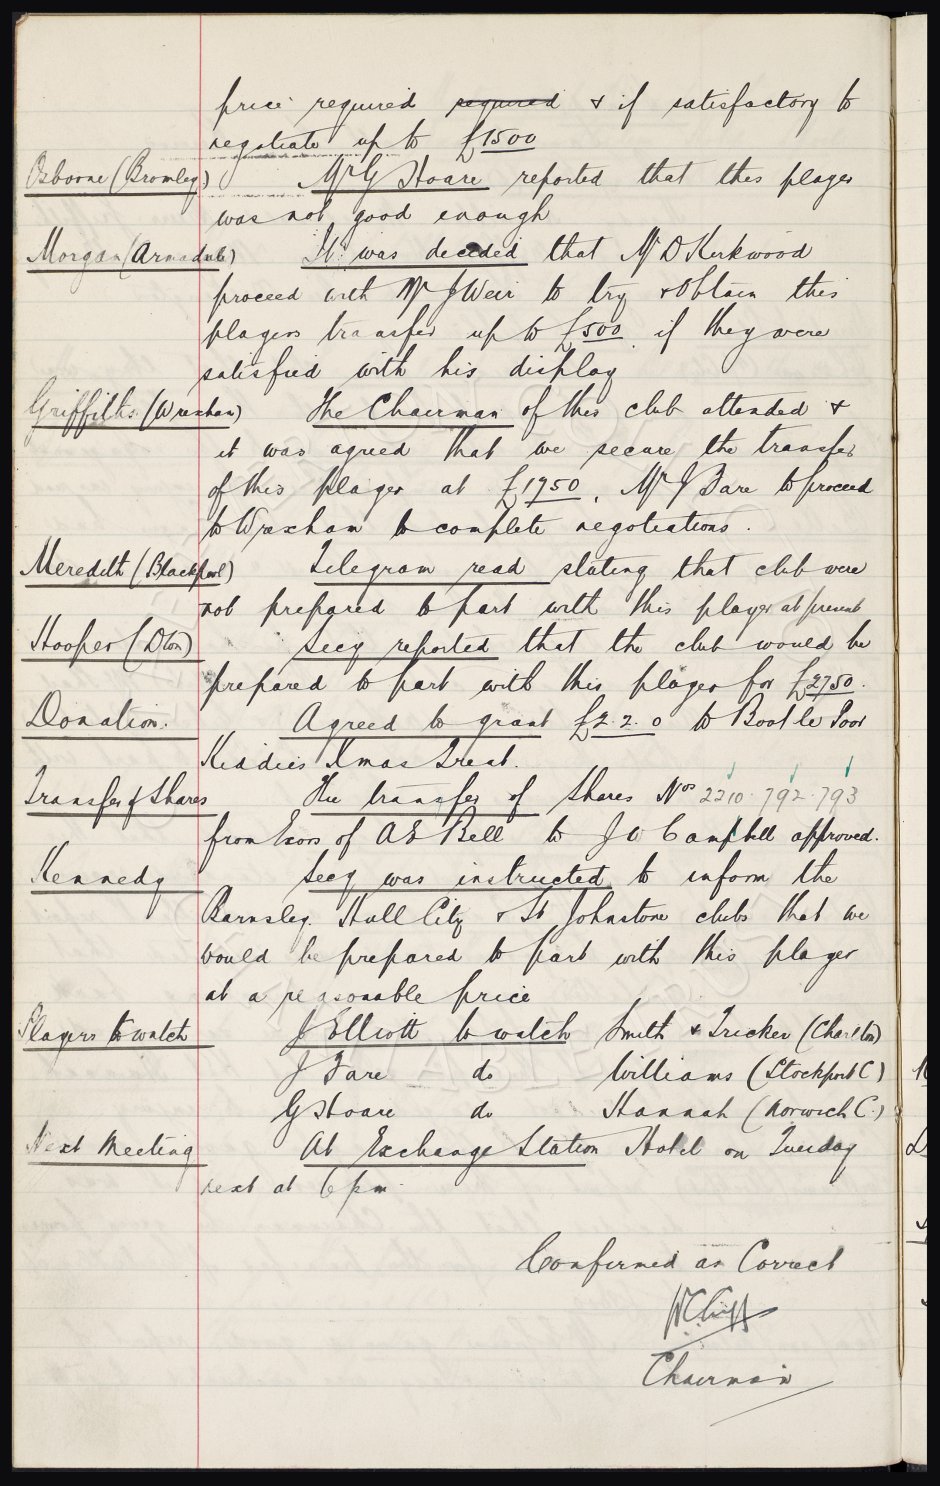 price required required & if satisfactory to
negotiate up to £1500
Osborne (Bromley) Mr G Hoare reported that this player
was not good enough
Morgan (Arnadale) It was decided that Mr D Kirkwood
proceed with Mr J Weir to try & obtain this
players transfer up to £500 if they were
satisfied with his display
Griffiths (Wrexham) The Chairman of this club attended &
it was agreed that we secure the transfer
of this player at £1750. Mr J Fare to proceed
to Wrexham to complete negotiations.
Meredith (Blackpool) Telegram read stating that club were
not prepared to part with this player at present
Hooper (Dton) Secy reported that the club would be
prepared to part with this player for £2750.
Donation. Agreed to grant £2.2.0 to Bootle Poor
Kiddies Xmas Treat.
Transfer of Shares The transfer of Shares Nos 2210. 792. 793
from Exors of A E Bell to J W Campbell approved.
Kennedy Secy was instructed to inform the
Barnsley. Hull City & St Johnstone clubs that we
would be prepared to part with this player
at a reasonable price
Players to watch J Elliott to watch Smith & Tricker (Charlton)
J Fare do Williams (Stockport C)
G Hoare do Hannah (Norwich C.)
Next Meeting At Exchange Station Hotel on Tuesday
next at 6 pm.
Confirmed as Correct
W C Cuff
Chairman